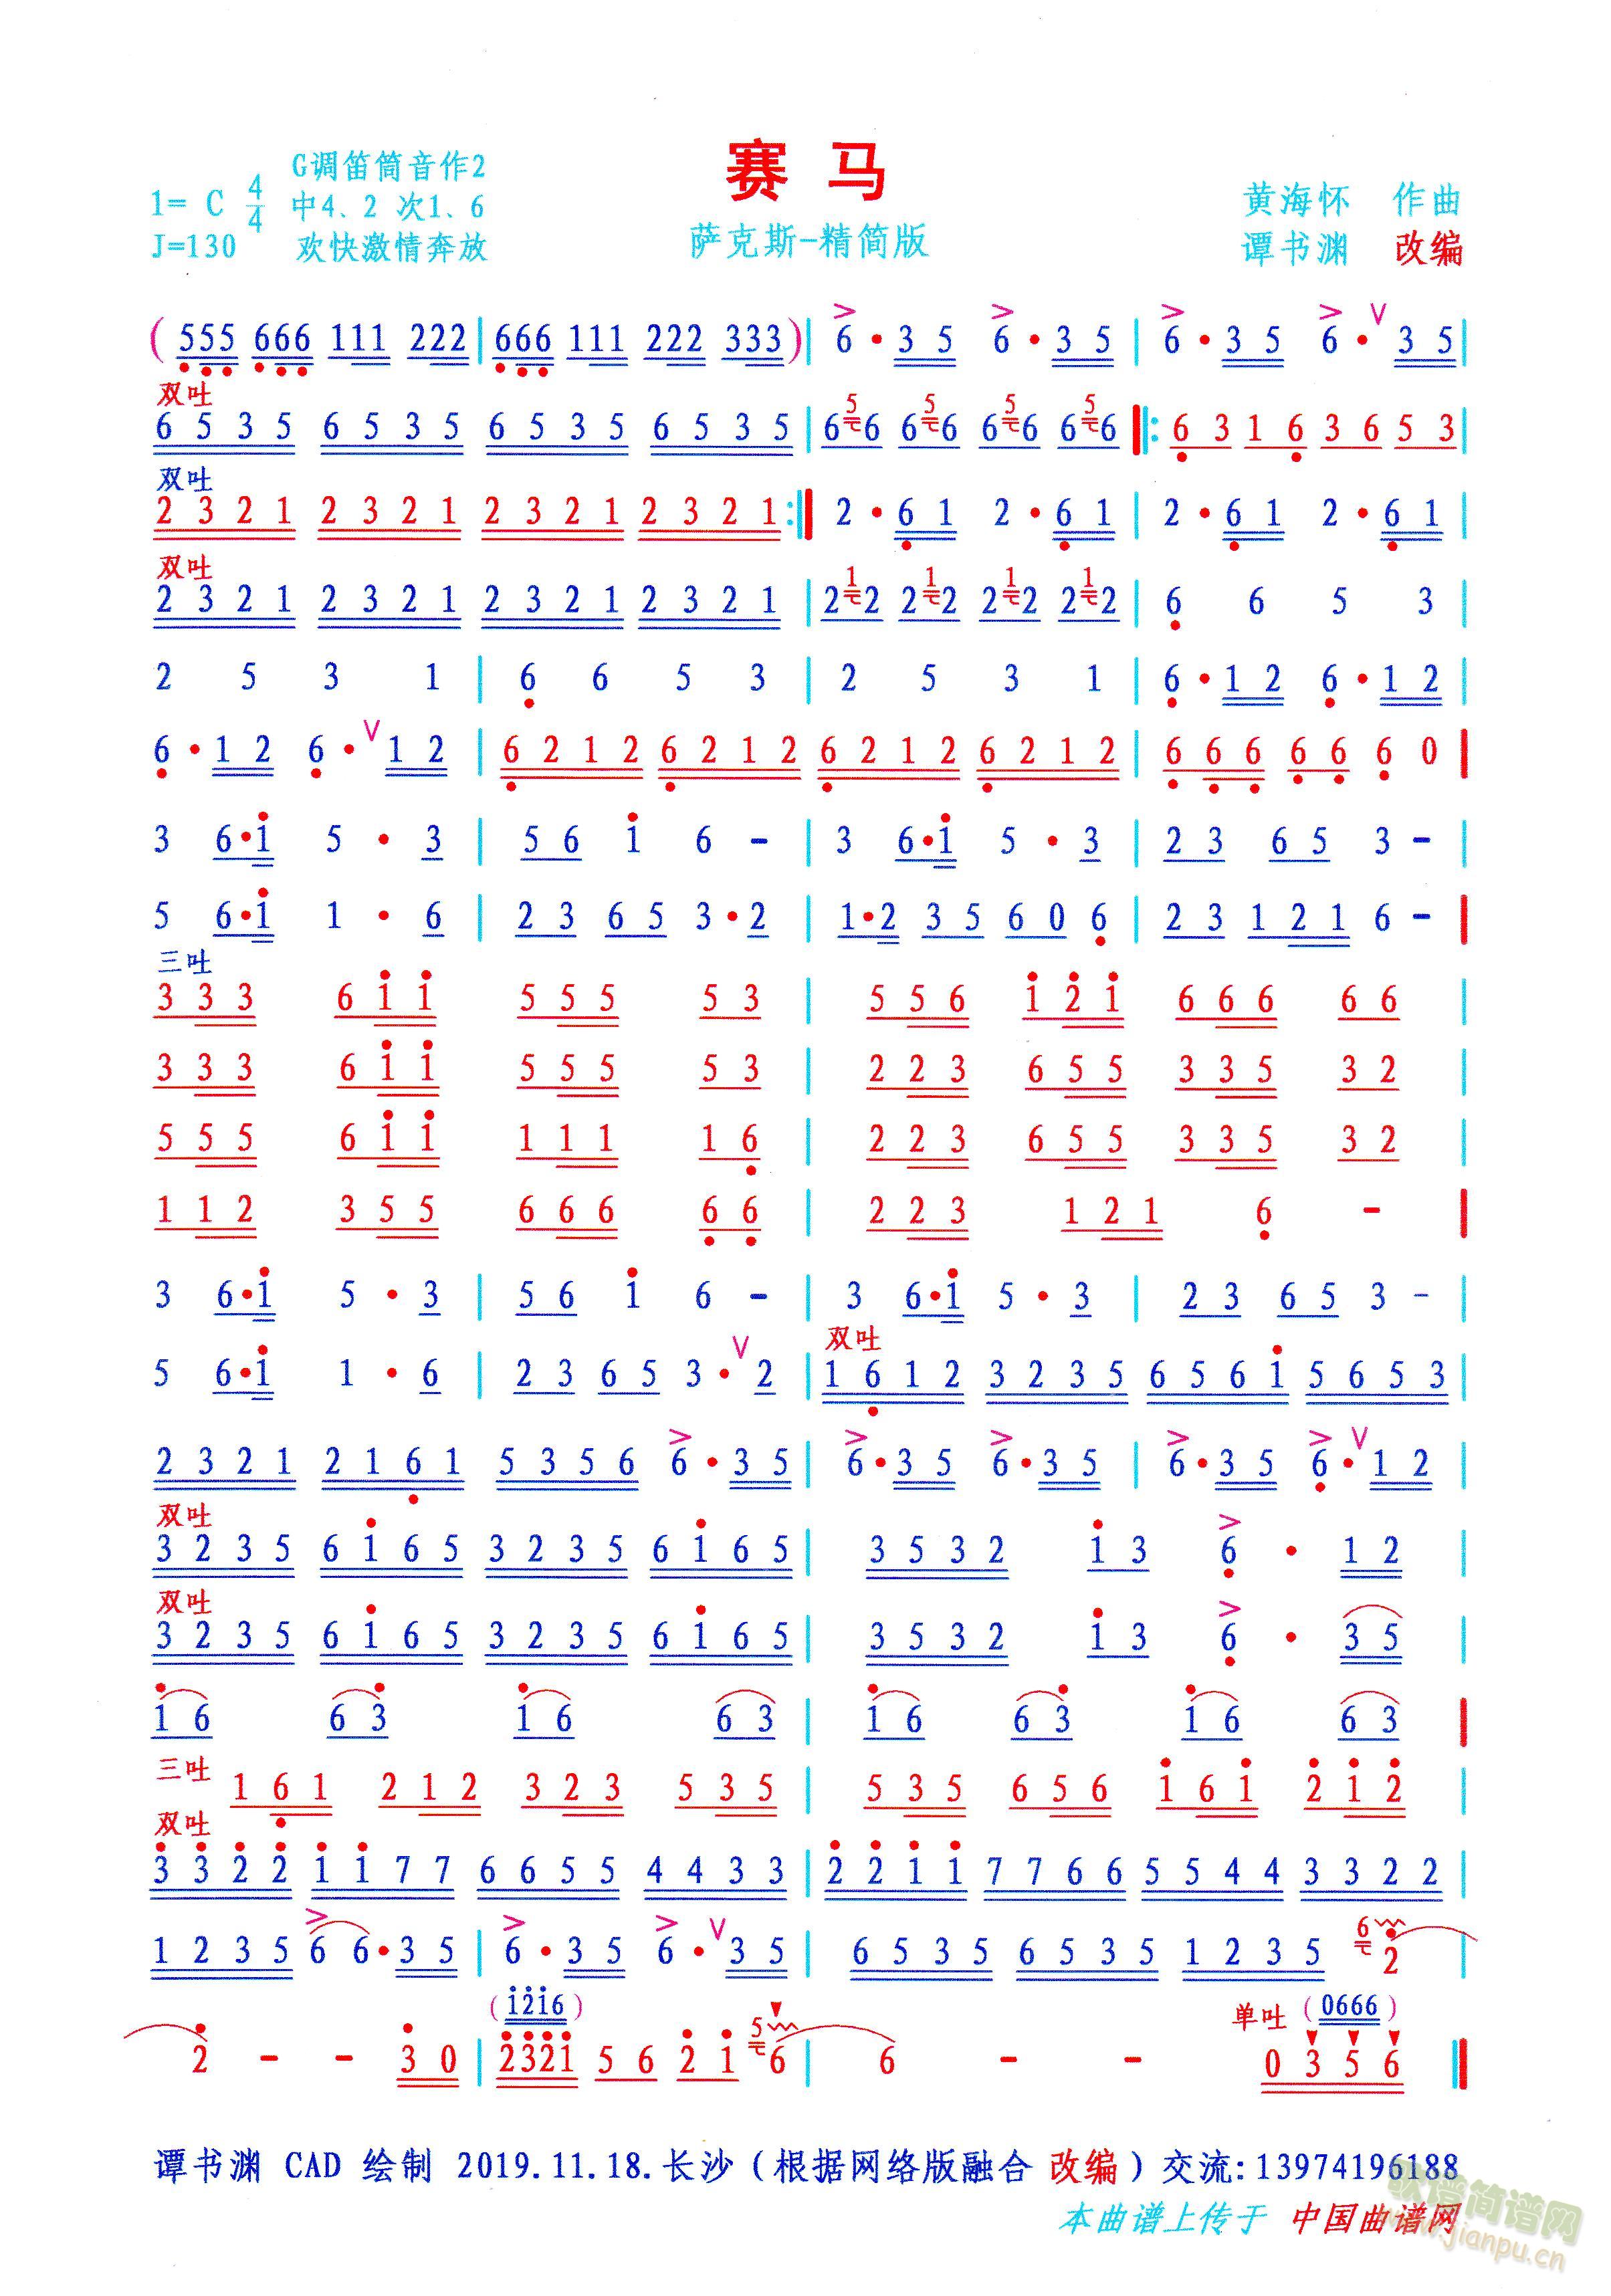 赛 马
G调笛筒音作2
1= C 4/4 中4、2 次1、6
J=130 欢快激情奔放
萨克斯-精简版
黄海怀 作曲
谭书渊 改编
( 555 666 111 222 | 666 111 222 333 ) | 6 · 3 5 6 · 3 5 | 6 · 3 5 6 · V 3 5 |
双吐
6 5 3 5 6 5 3 5 6 5 3 5 6 5 3 5 | 6 5 6 6 5 6 6 5 6 6 5 6 |: 6 3 1 6 3 6 5 3 |
双吐
2 3 2 1 2 3 2 1 2 3 2 1 2 3 2 1 :| 2 · 6 1 2 · 6 1 | 2 · 6 1 2 · 6 1 |
双吐
2 3 2 1 2 3 2 1 2 3 2 1 2 3 2 1 | 2 1 2 2 1 2 2 1 2 2 1 2 | 6 6 5 3 |
2 5 3 1 | 6 6 5 3 | 2 5 3 1 | 6 · 1 2 6 · 1 2 |
6 · 1 2 6 · V 1 2 | 6 2 1 2 6 2 1 2 6 2 1 2 6 2 1 2 | 6 6 6 6 6 6 0 |
3 6 · i 5 · 3 | 5 6 i 6 - | 3 6 · i 5 · 3 | 2 3 6 5 3 - |
5 6 · i 1 · 6 | 2 3 6 5 3 · 2 | 1 · 2 3 5 6 0 6 | 2 3 1 2 1 6 - |
三吐
3 3 3 6 i i 5 5 5 5 3 | 5 5 6 i 2 i 6 6 6 6 6 |
3 3 3 6 i i 5 5 5 5 3 | 2 2 3 6 5 5 3 3 5 3 2 |
5 5 5 6 i i 1 1 1 1 6 | 2 2 3 6 5 5 3 3 5 3 2 |
1 1 2 3 5 5 6 6 6 6 6 | 2 2 3 1 2 1 6 - |
3 6 · i 5 · 3 | 5 6 i 6 - | 3 6 · i 5 · 3 | 2 3 6 5 3 - |
双吐
5 6 · i 1 · 6 | 2 3 6 5 3 · V 2 | 1 6 1 2 3 2 3 5 6 5 6 i 5 6 5 3 |
2 3 2 1 2 1 6 1 5 3 5 6 6 · 3 5 | 6 · 3 5 6 · 3 5 | 6 · 3 5 6 · V 1 2 |
双吐
3 2 3 5 6 i 6 5 3 2 3 5 6 i 6 5 | 3 5 3 2 i 3 6 · 1 2 |
双吐
3 2 3 5 6 i 6 5 3 2 3 5 6 i 6 5 | 3 5 3 2 i 3 6 · 3 5 |
i 6 6 3 i 6 6 3 | i 6 6 3 i 6 6 3 |
三吐 1 6 1 2 1 2 3 2 3 5 3 5 | 5 3 5 6 5 6 i 6 i 2 i 2 |
双吐
3 3 2 2 i i 7 7 6 6 5 5 4 4 3 3 | 2 2 i i 7 7 6 6 5 5 4 4 3 3 2 2 |
1 2 3 5 6 6 · 3 5 | 6 · 3 5 6 · V 3 5 | 6 5 3 5 6 5 3 5 1 2 3 5 6 2 |
( i2i6 ) 单吐 ( 0666 )
2 - - 3 0 | 232i 5 6 2 i 5 6 | 6 - - 0 3 5 6 |
谭书渊 CAD 绘制 2019.11.18.长沙（根据网络版融合 改编）交流:13974196188
本曲谱上传于 中国曲谱网
歌谱简谱网
www.jianpu.cn